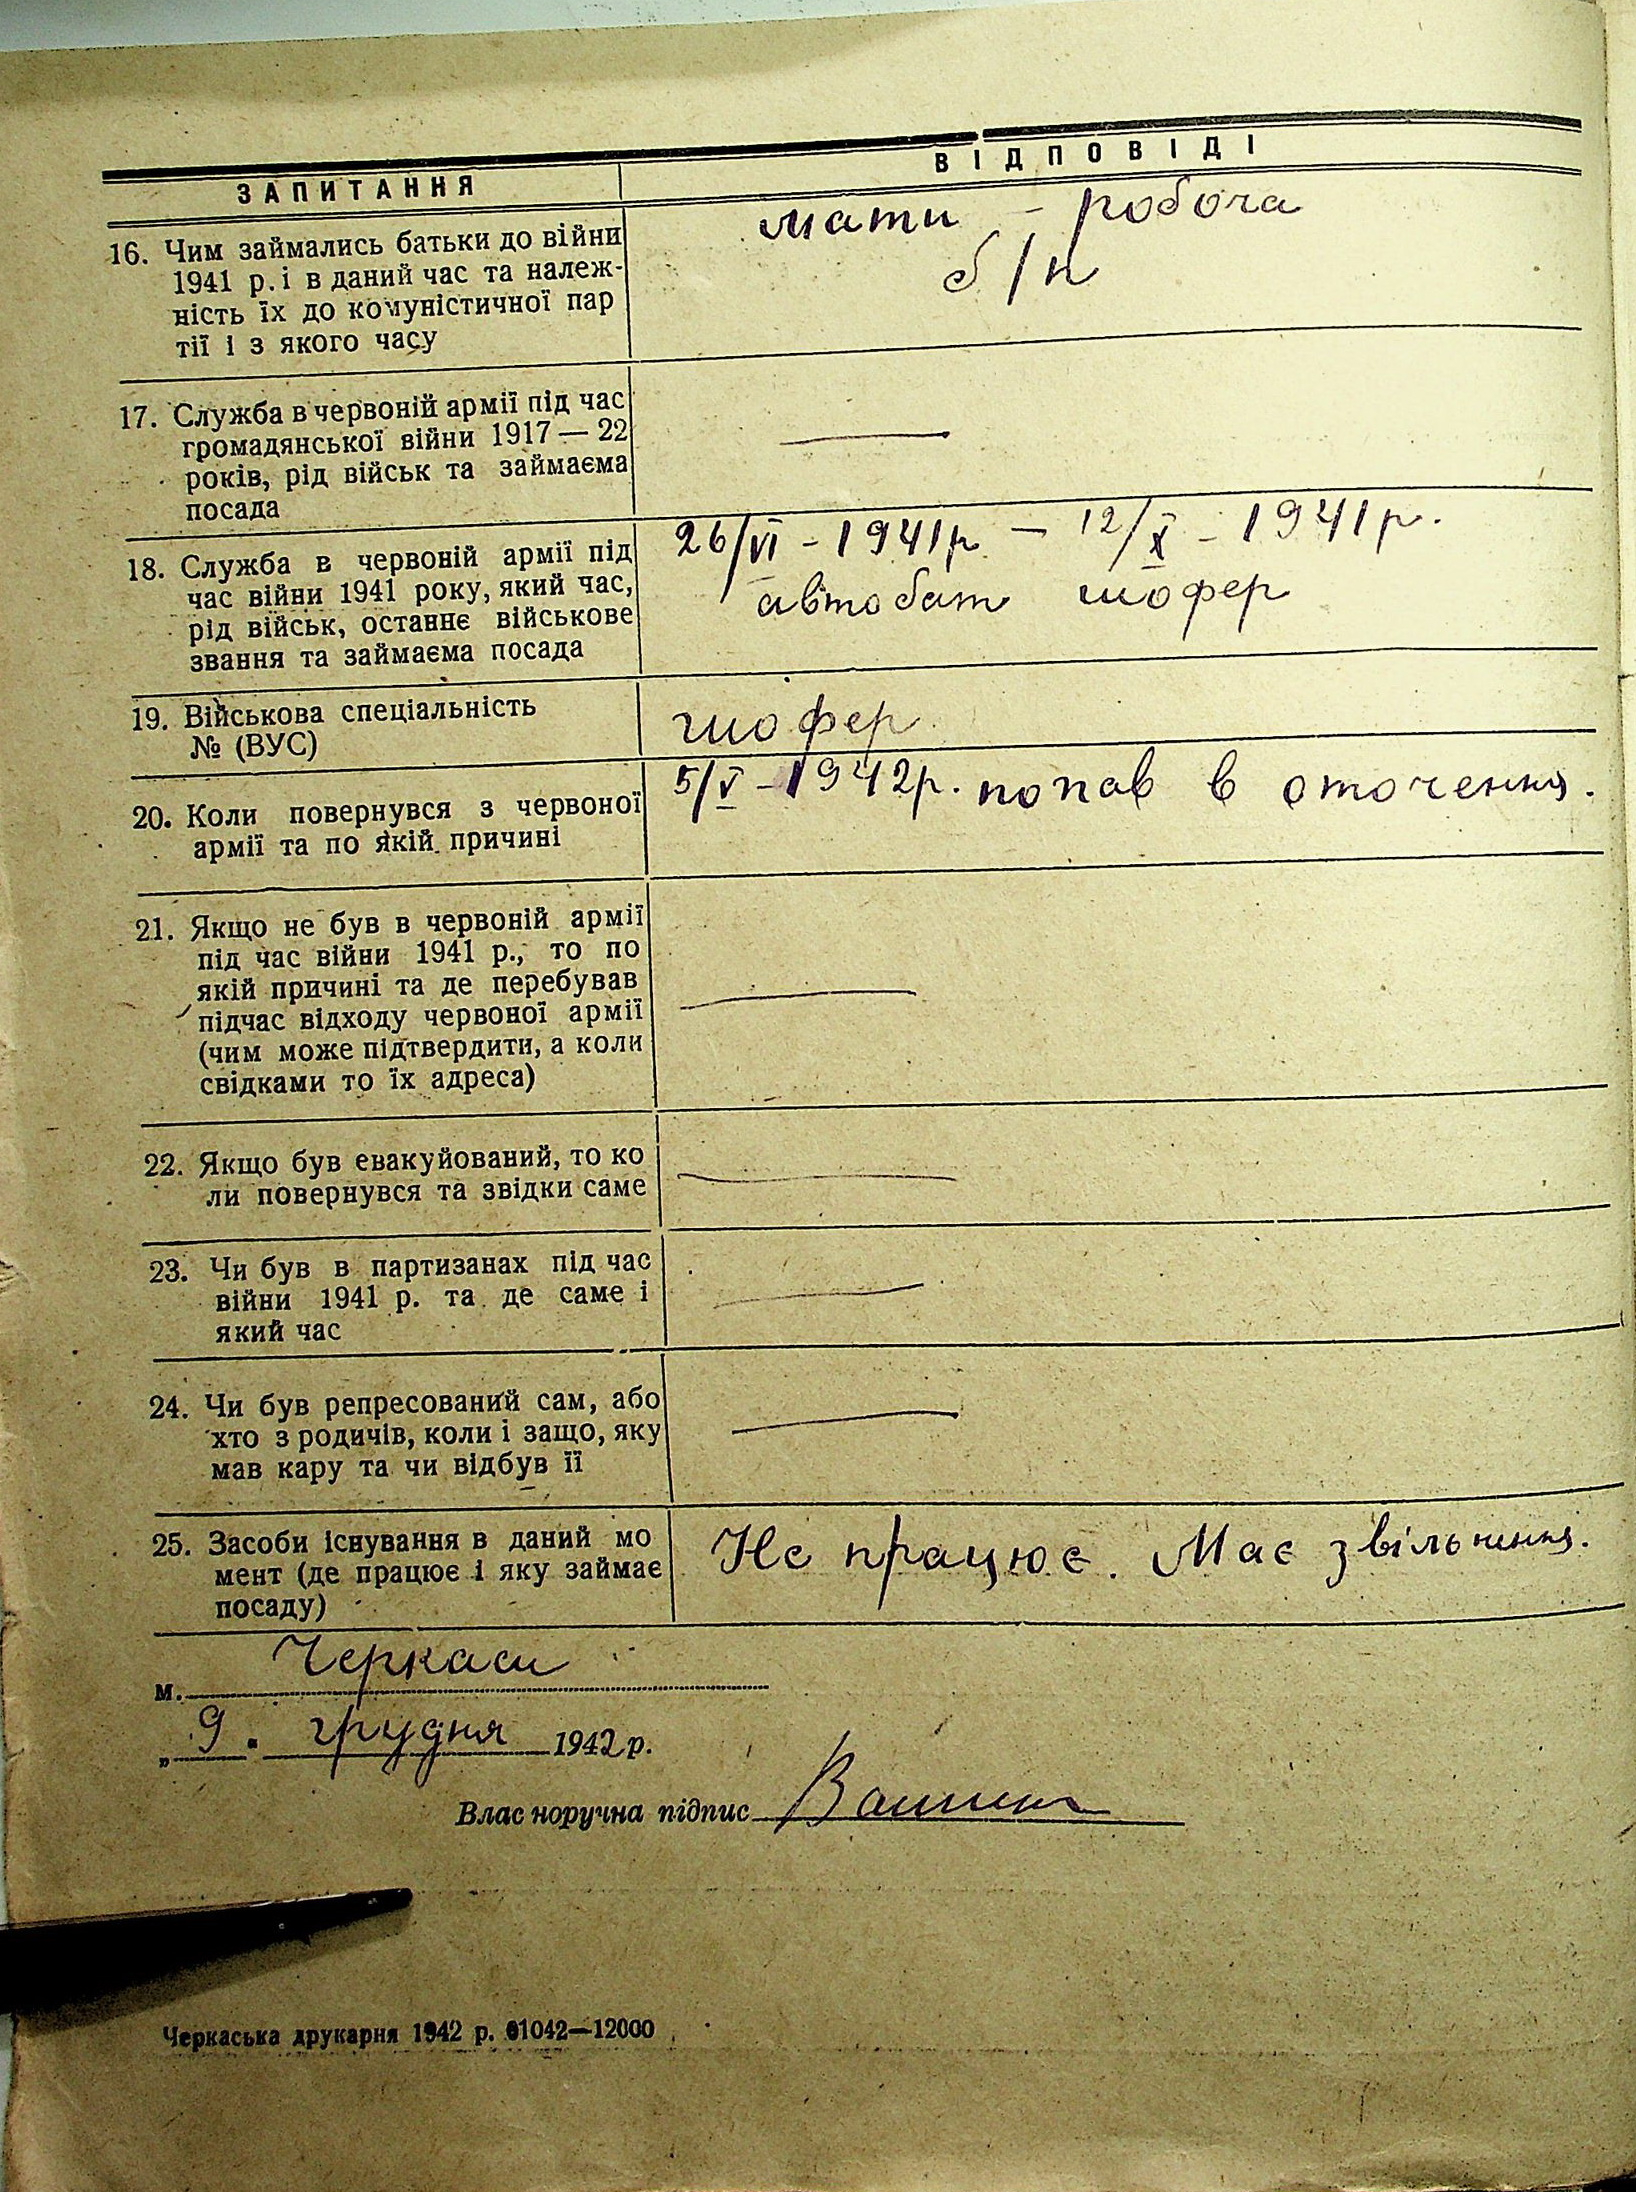 ЗАПИТАННЯ
ВІДПОВІДІ
16. Чим займались батьки до війни
1941 р. і в даний час та належ-
ність їх до комуністичної пар
тії і з якого часу
мати - робоча
б/п
17. Служба в червоній армії під час
громадянської війни 1917 — 22
років, рід військ та займаєма
посада
18. Служба в червоній армії під
час війни 1941 року, який час,
рід військ, останнє військове
звання та займаєма посада
26/VI - 1941р. — 12/X - 1941р.
автобат шофер
19. Військова спеціальність
№ (ВУС)
шофер
20. Коли повернувся з червоної
армії та по якій причині
5/V - 1942р. попав в оточення.
21. Якщо не був в червоній армії
під час війни 1941 р., то по
якій причині та де перебував
підчас відходу червоної армії
(чим може підтвердити, а коли
свідками то їх адреса)
22. Якщо був евакуйований, то ко
ли повернувся та звідки саме
23. Чи був в партизанах під час
війни 1941 р. та де саме і
який час
24. Чи був репресований сам, або
хто з родичів, коли і защо, яку
мав кару та чи відбув її
25. Засоби існування в даний мо
мент (де працює і яку займає
посаду)
Не працює. Має звільнення.
м. Черкаси
„ 9 . грудня 1942 р.
Власноручна підпис
Черкаська друкарня 1942 р. 01042—12000